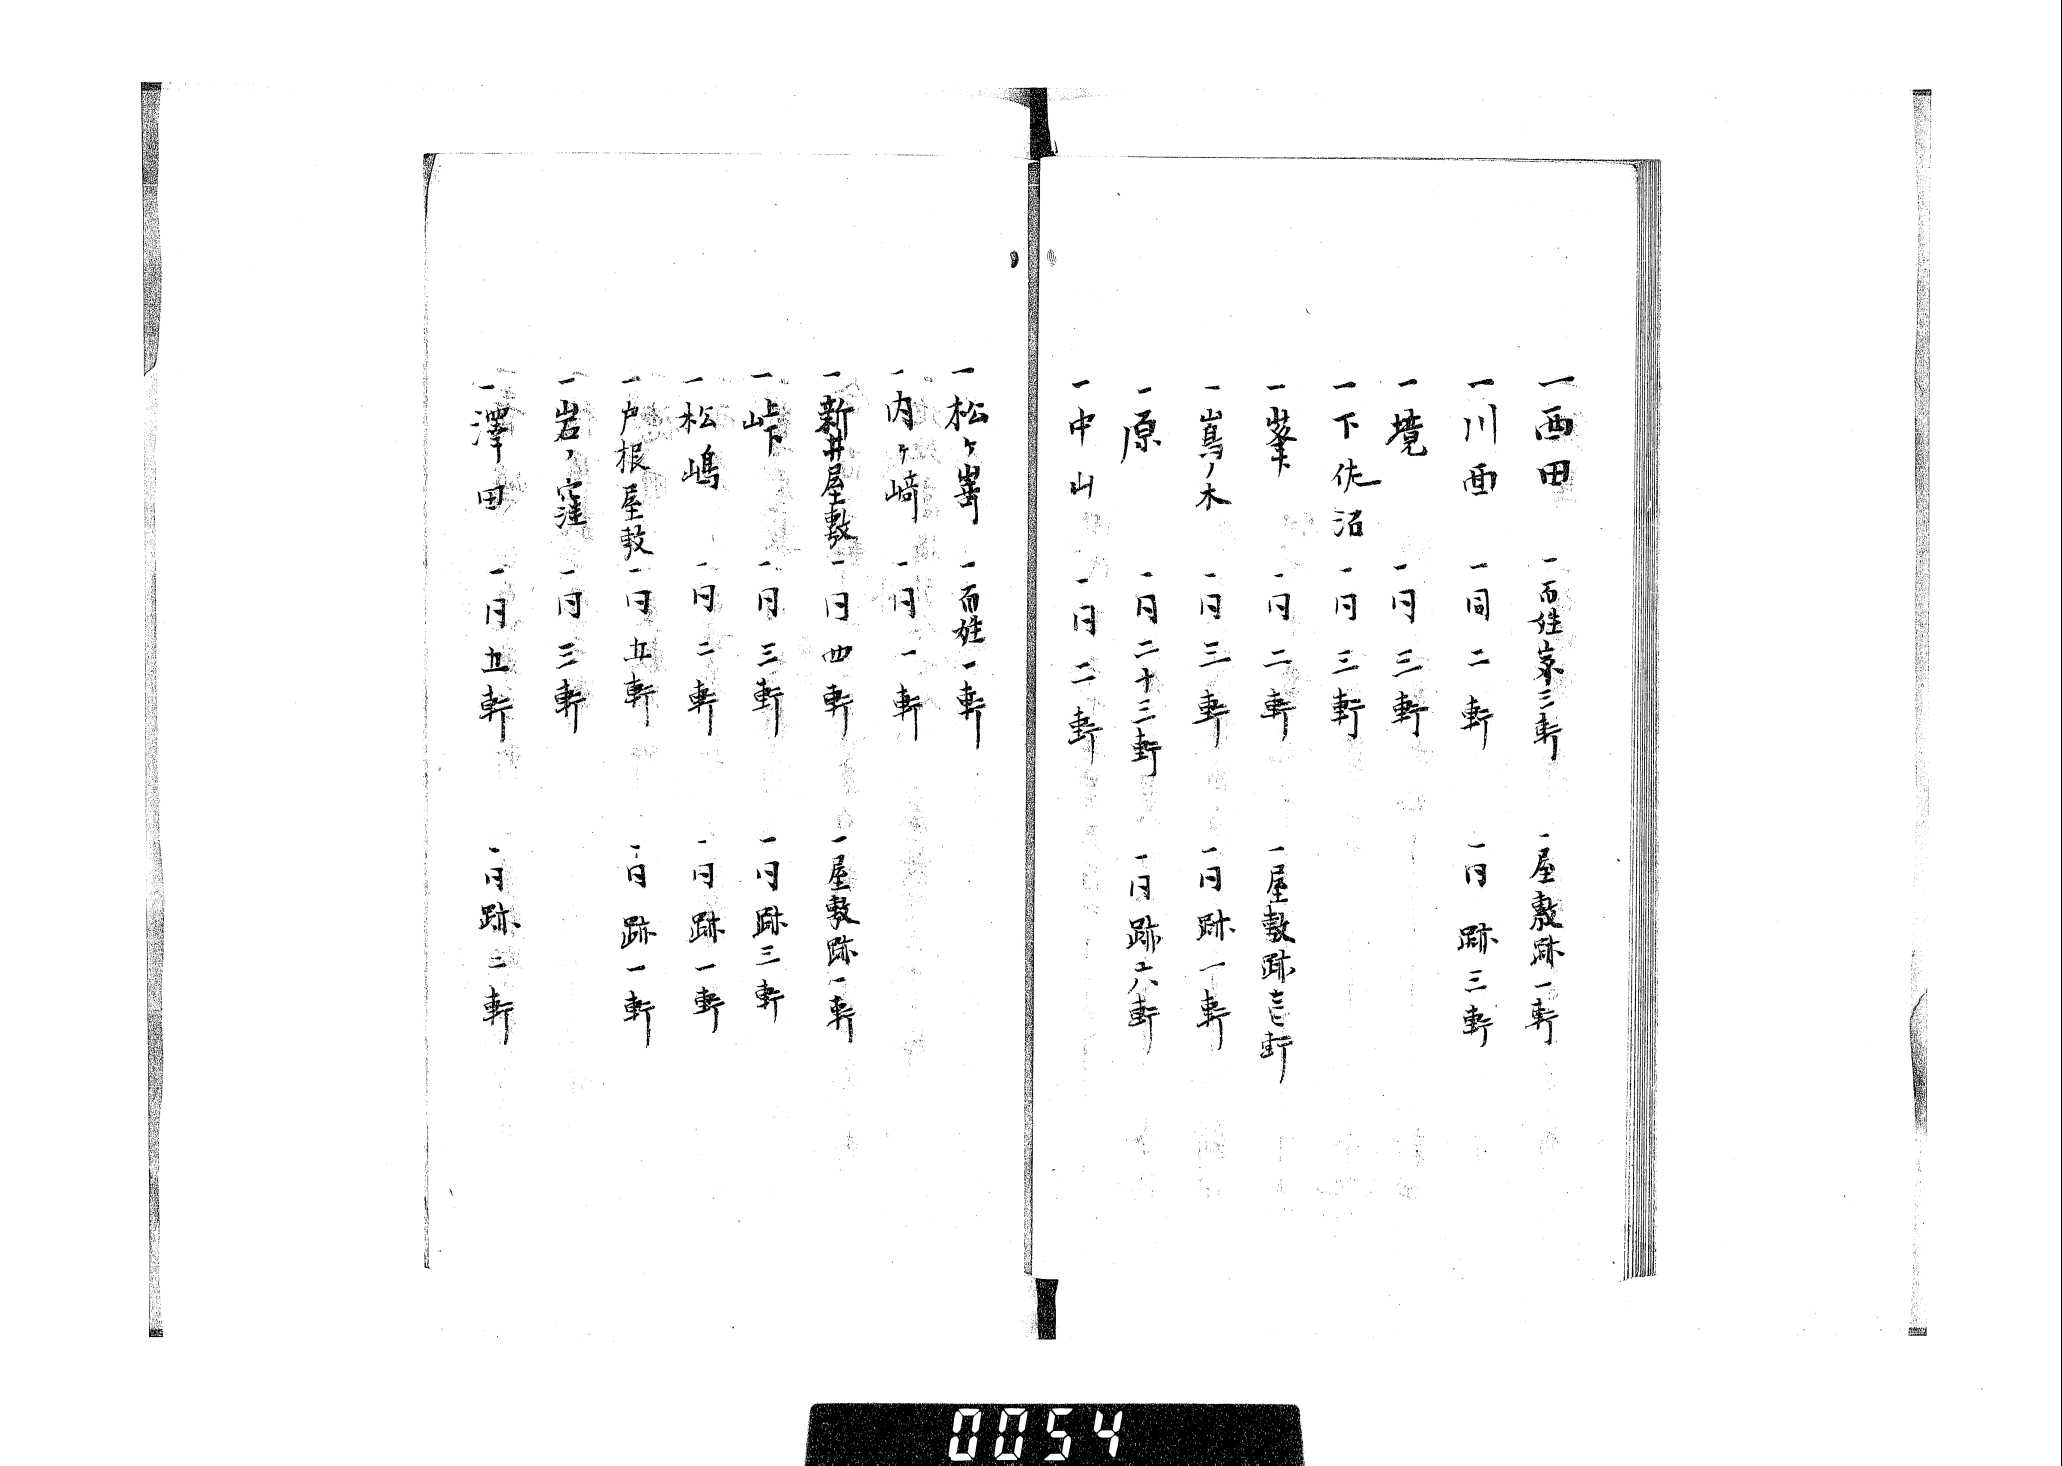 一西田　一百姓家三軒　一屋敷跡一軒
一川面　一同二軒　一同跡三軒
一境　一同三軒
一下佐沼　一同三軒
一峯　一同二軒　一屋敷跡壱軒
一嶌ノ木　一同三軒　一同跡一軒
一原　一同二十三軒　一同跡六軒
一中山　一同二軒
一松ヶ嵜　一百姓一軒
一内ヶ﨑　一同一軒
一新井屋敷　一同四軒　一屋敷跡一軒
一峠　一同三軒　一同跡三軒
一松嶋　一同二軒　一同跡一軒
一戸根屋敷　一同五軒　一同跡一軒
一岩ノ窪　一同三軒
一澤田　一同五軒　一同跡二軒
0054